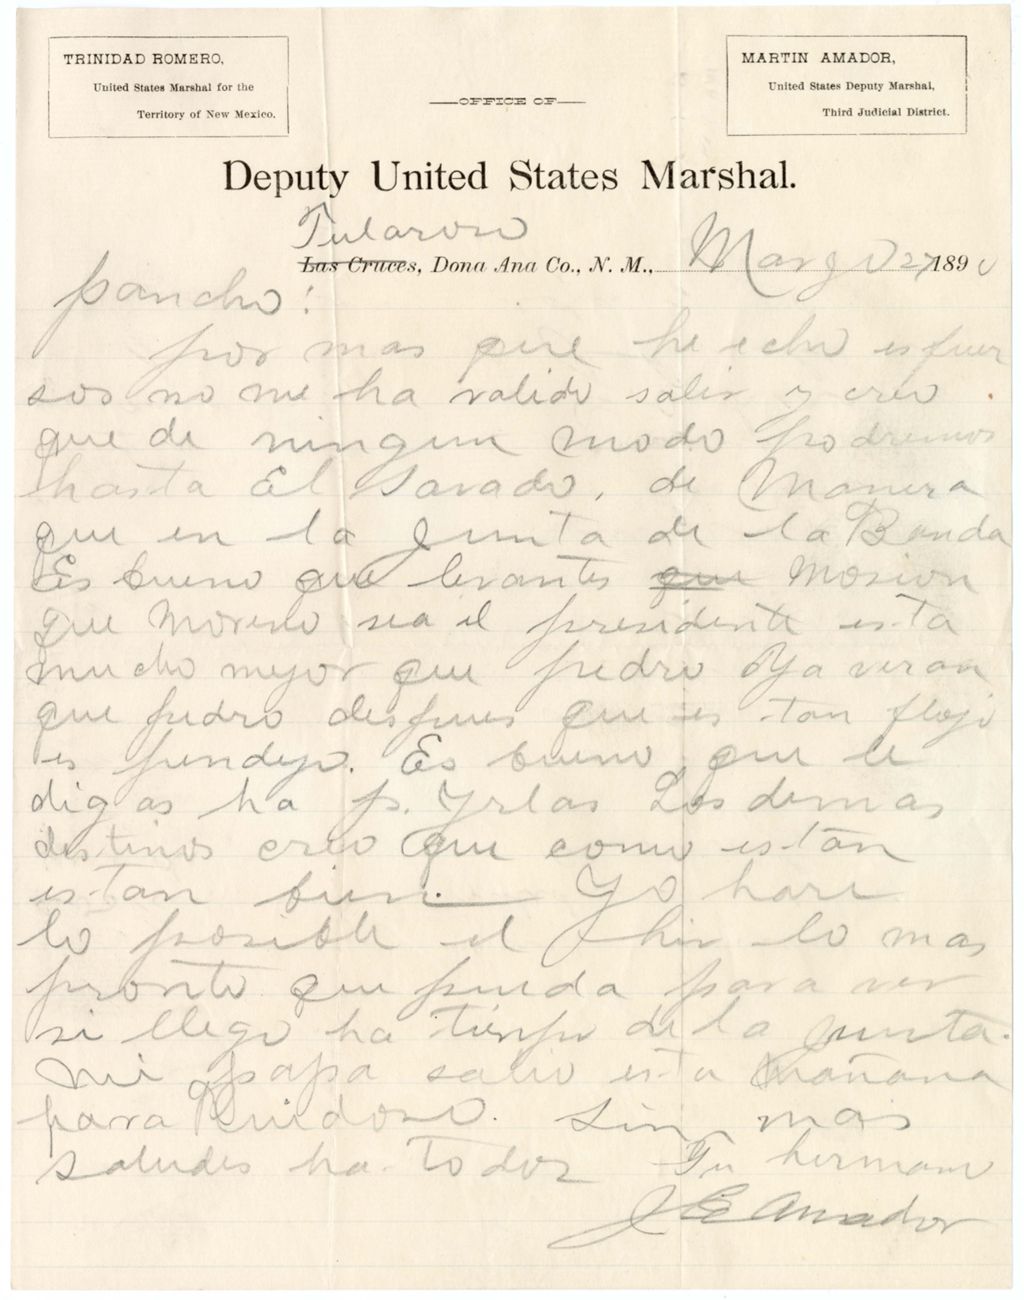 TRINIDAD ROMERO,
United States Marshal for the
Territory of New Mexico.
OFFICE OF
MARTIN AMADOR,
United States Deputy Marshal,
Third Judicial District.
Deputy United States Marshal.
Tularoso
Las Cruces, Dona Ana Co., N. M., Marzo 27 1890
Pancho!
por mas que he echo esfuer
sos no me ha valido salir y creo
que de ningun modo podremos
hasta El Savado, de Manera
que en la Junta de la Banda
Es bueno que levantes que Mosion
que Moreno sea el presidente esta
mucho mejor que pedro Ya veran
que pedro despues que es tan flojo
es pendejo. Es bueno que le
digas ha p. Yrlas Los demas
destinos creo que como estan
estan bien. Yo hare
lo posible el hir lo mas
pronto que pueda para ver
si llego ha tiempo de la junta.
Mi papa salio esta mañana
para Ruidoso. Sin mas
saludes ha todos Tu hermano
J E Amador